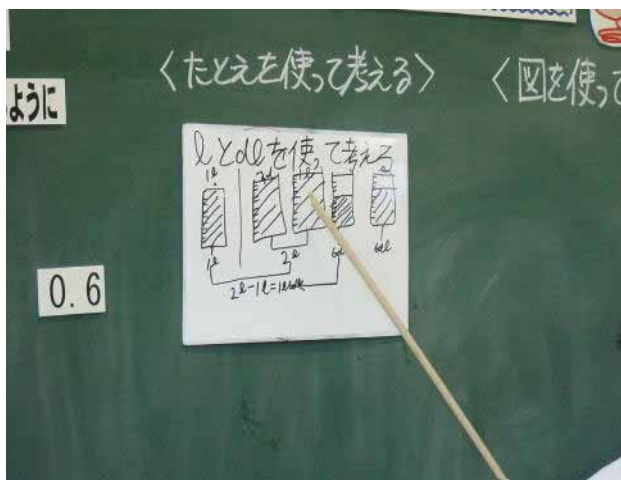 〈たとえを使って考える〉
〈図を使って
ように
lとdlを使って考える
1l
1l
2l
6dl
6dl
2l-1l=1l6dl
0.6